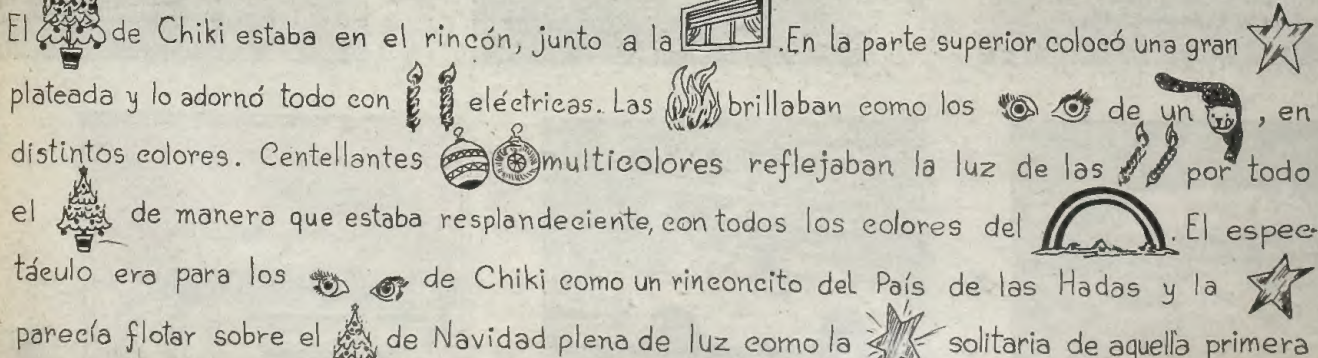 El de Chiki estaba en el rincón, junto a la . En la parte superior colocó una gran
plateada y lo adornó todo con eléctricas. Las brillaban como los de un , en
distintos colores. Centellantes multicolores reflejaban la luz de las por todo
el de manera que estaba resplandeciente, con todos los colores del . El espec-
táculo era para los de Chiki como un rinconcito del País de las Hadas y la
parecía flotar sobre el de Navidad plena de luz como la solitaria de aquella primera